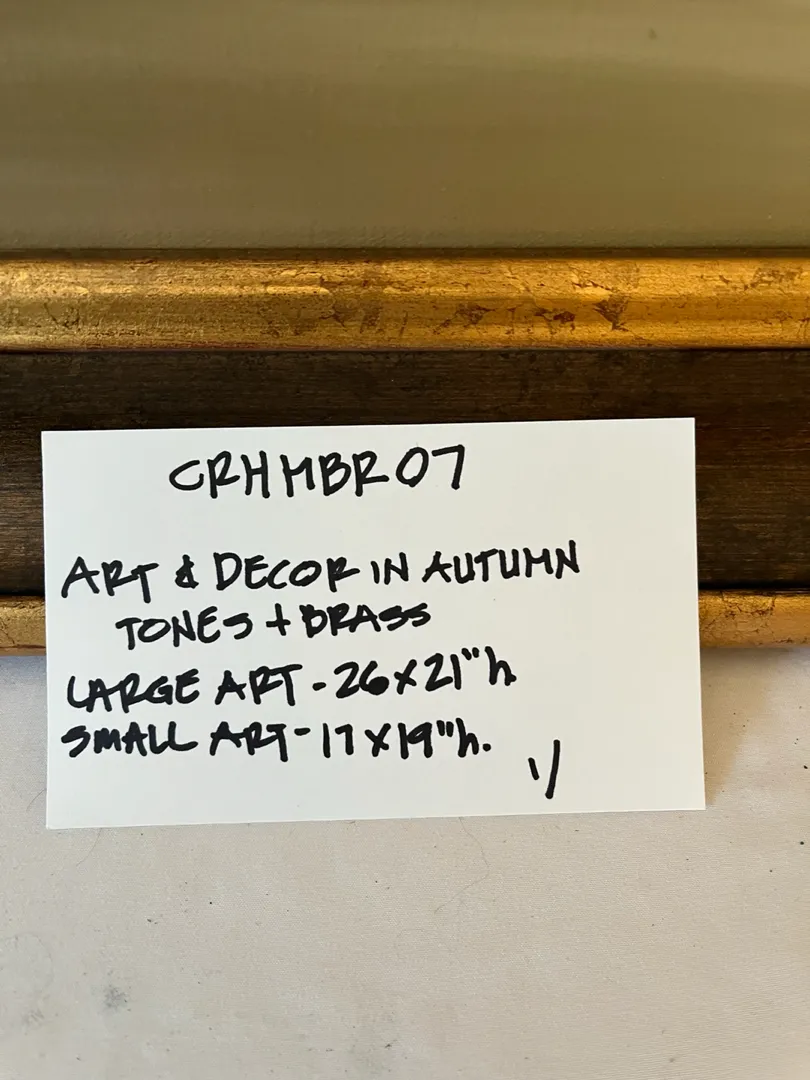 CRHMBR07
ART & DECOR IN AUTUMN
TONES + BRASS
LARGE ART - 26 X 21" h
SMALL ART - 17 X 19" h.
1/